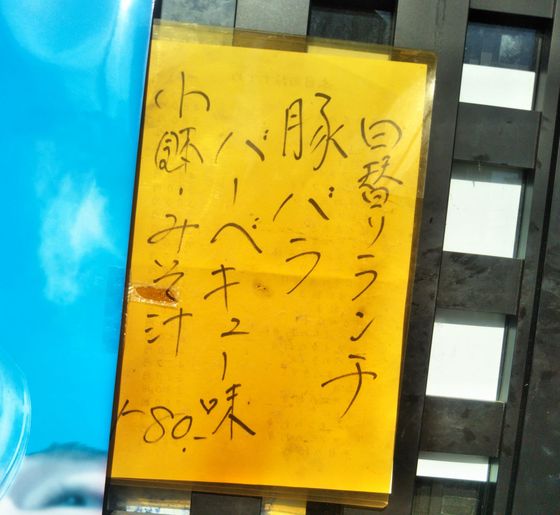 日替りランチ
豚バラ
バーベキュー味
小鉢・みそ汁